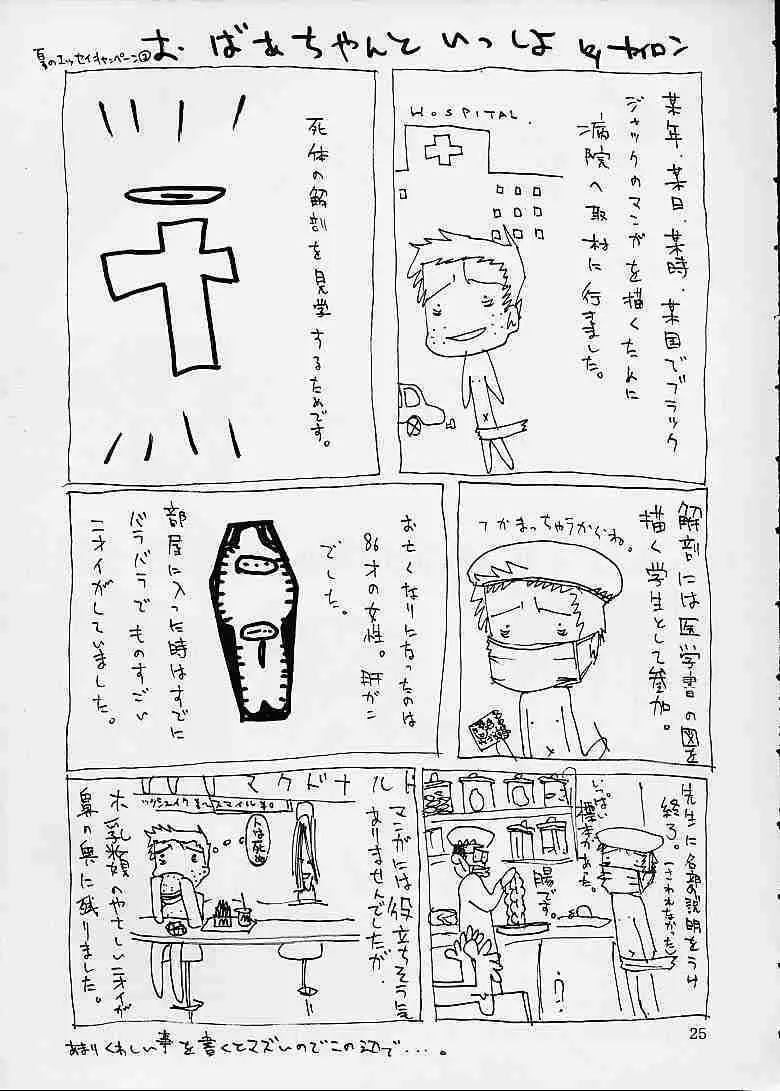 夏のエッセイキャンペーン②
おばあちゃんといっしょ
by ナイロン
某年、某日、某時、某国でブラック
ジャックのマンガを描くために
病院へ取材に行きました。
HOSPITAL.
死体の解剖を見学するためです。
解剖には医学書の図を
描く学生として参加。
つかまっちゃうからね。
お亡くなりになったのは
86才の女性。肝ガン
でした。
部屋に入った時はすでに
バラバラでものすごい
ニオイがしていました。
先生に各部の説明をうけ
終了。(さわれなかった)
いっぱい
標本があった。
腸です。
マクドナルド
マンガには役立ちそうに
ありませんでしたが、
人は死ぬ
ホ乳類のやさしいニオイが
鼻の奥に残りました。
あまりくわしい事を書くとマズいのでこの辺で・・・。
25